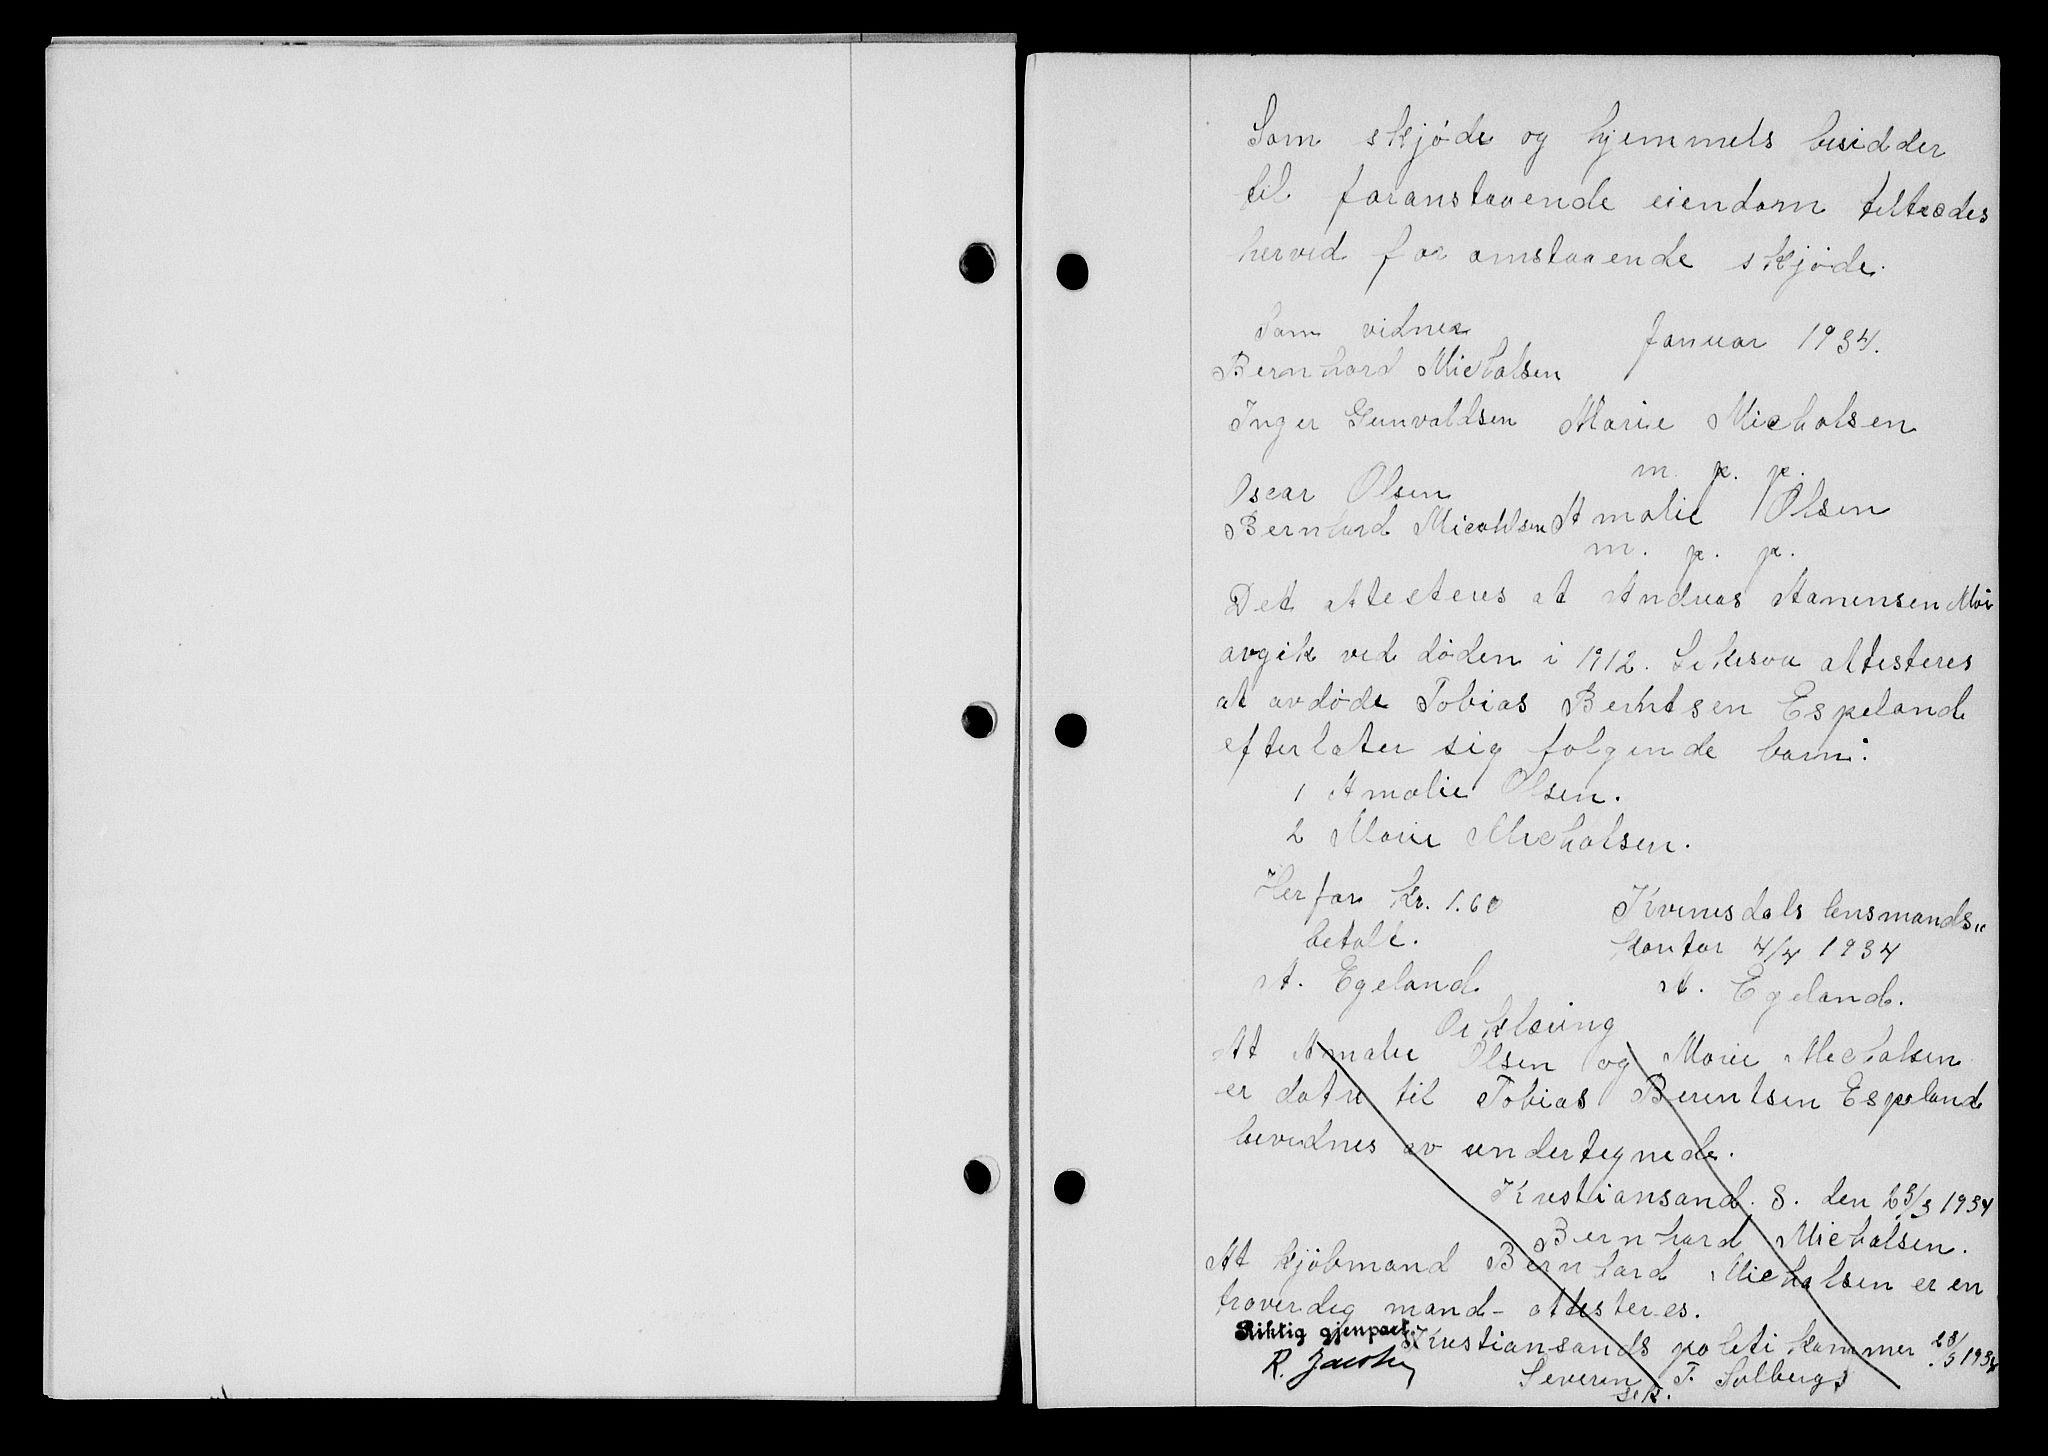 Som skjøde og hjemmels besidder
til foranstaaende eiendom tiltrædes
herved for omstaaende skjøde.
Som vidner
Januar 1934.
Bernhard Micholsen
Inger Gunvaldsen Marie Micholsen
m. p. p.
Oscar Olsen
Bernhard Micohlsen Amalie Olsen
m. p. p.
Det attesteres at Andreas Hanensen Moi
avgik ved døden i 1912. Likesaa attesteres
at avdøde Tobias Berntsen Espeland
efterlater sig følgende barn:
1 Amalie Olsen.
2 Marie Micholsen.
Herfor kr. 1.60
betalt.
A. Egeland
Kvinesdals lensmands"
kontor 4/4 1934
A. Egeland.
Erklæring
At Amalie Olsen og Marie Micholsen
er døtre til Tobias Berentsen Espeland
bevidnes av undertegnede.
Kristiansand. S. den 23/3 1934
Bernhard Micholsen.
At kjøbmand Bernhard Micholsen er en
troverdig mand - attesteres.
Riktig gjenpart.
Kristiansands politikammer 28/3 1934
R.
Severin T. Solberg
sek.